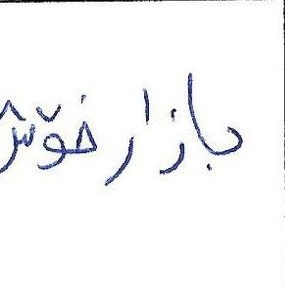 بازار خۆش